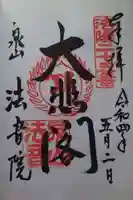 奉拝
令和四年
五月二日
大悲閣
泉山
法音院